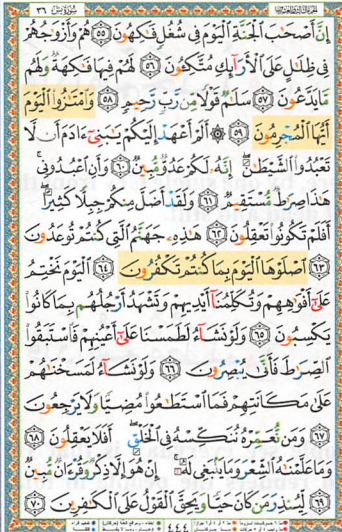 ٣٦ سورة يس
إِنَّ أَصْحَٰبَ ٱلْجَنَّةِ ٱلْيَوْمَ فِى شُغُلٍ فَٰكِهُونَ ٥٥ هُمْ وَأَزْوَٰجُهُمْ
فِى ظِلَٰلٍ عَلَى ٱلْأَرَآئِكِ مُتَّكِـُٔونَ ٥٦ لَهُمْ فِيهَا فَٰكِهَةٌ وَلَهُم
مَّا يَدَّعُونَ ٥٧ سَلَٰمٌ قَوْلًا مِّن رَّبٍّ رَّحِيمٍ ٥٨ وَٱمْتَٰزُوا۟ ٱلْيَوْمَ
أَيُّهَا ٱلْمُجْرِمُونَ ٥٩ ۞ أَلَمْ أَعْهَدْ إِلَيْكُمْ يَٰبَنِىٓ ءَادَمَ أَن لَّا
تَعْبُدُوا۟ ٱلشَّيْطَٰنَ ۖ إِنَّهُۥ لَكُمْ عَدُوٌّ مُّبِينٌ ٦٠ وَأَنِ ٱعْبُدُونِى ۚ
هَٰذَا صِرَٰطٌ مُّسْتَقِيمٌ ٦١ وَلَقَدْ أَضَلَّ مِنكُمْ جِبِلًّا كَثِيرًا ۖ
أَفَلَمْ تَكُونُوا۟ تَعْقِلُونَ ٦٢ هَٰذِهِۦ جَهَنَّمُ ٱلَّتِى كُنتُمْ تُوعَدُونَ
٦٣ ٱصْلَوْهَا ٱلْيَوْمَ بِمَا كُنتُمْ تَكْفُرُونَ ٦٤ ٱلْيَوْمَ نَخْتِمُ
عَلَىٰٓ أَفْوَٰهِهِمْ وَتُكَلِّمُنَآ أَيْدِيهِمْ وَتَشْهَدُ أَرْجُلُهُم بِمَا كَانُوا۟
يَكْسِبُونَ ٦٥ وَلَوْ نَشَآءُ لَطَمَسْنَا عَلَىٰٓ أَعْيُنِهِمْ فَٱسْتَبَقُوا۟
ٱلصِّرَٰطَ فَأَنَّىٰ يُبْصِرُونَ ٦٦ وَلَوْ نَشَآءُ لَمَسَخْنَٰهُمْ
عَلَىٰ مَكَانَتِهِمْ فَمَا ٱسْتَطَٰعُوا۟ مُضِيًّا وَلَا يَرْجِعُونَ
٦٧ وَمَن نُّعَمِّرْهُ نُنَكِّسْهُ فِى ٱلْخَلْقِ ۖ أَفَلَا يَعْقِلُونَ ٦٨
وَمَا عَلَّمْنَٰهُ ٱلشِّعْرَ وَمَا يَنۢبَغِى لَهُۥٓ ۚ إِنْ هُوَ إِلَّا ذِكْرٌ وَقُرْءَانٌ مُّبِينٌ
٦٩ لِّيُنذِرَ مَن كَانَ حَيًّا وَيَحِقَّ ٱلْقَوْلُ عَلَى ٱلْكَٰفِرِينَ ٧٠
٤٤٤